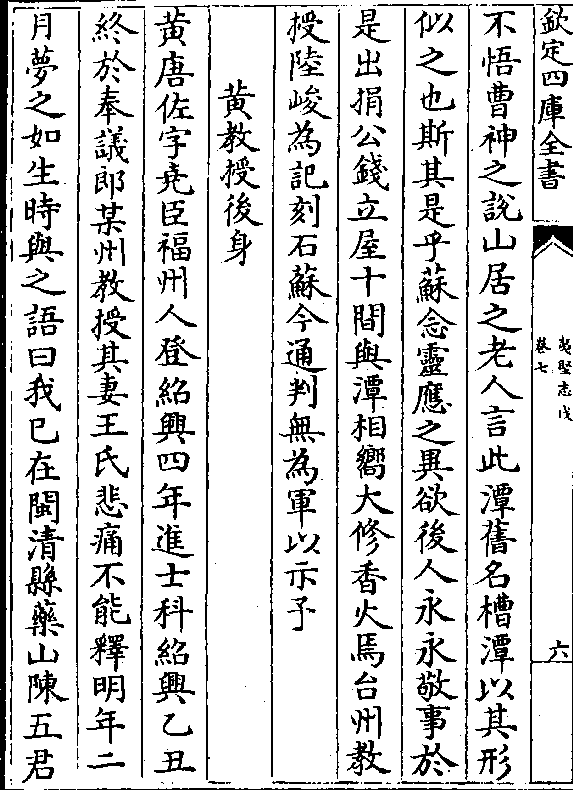 欽定四庫全書
夷堅志戊
卷七
六
不悟曹神之說山居之老人言此潭舊名槽潭以其形
似之也斯其是乎蘇念靈應之異欲後人永永敬事於
是出捐公錢立屋十間與潭相嚮大修香火焉台州教
授陸峻為記刻石蘇今通判無為軍以示予
黃教授後身
黃唐佐字堯臣福州人登紹興四年進士科紹興乙丑
終於奉議郎某州教授其妻王氏悲痛不能釋明年二
月夢之如生時與之語曰我已在閩清縣藥山陳五君